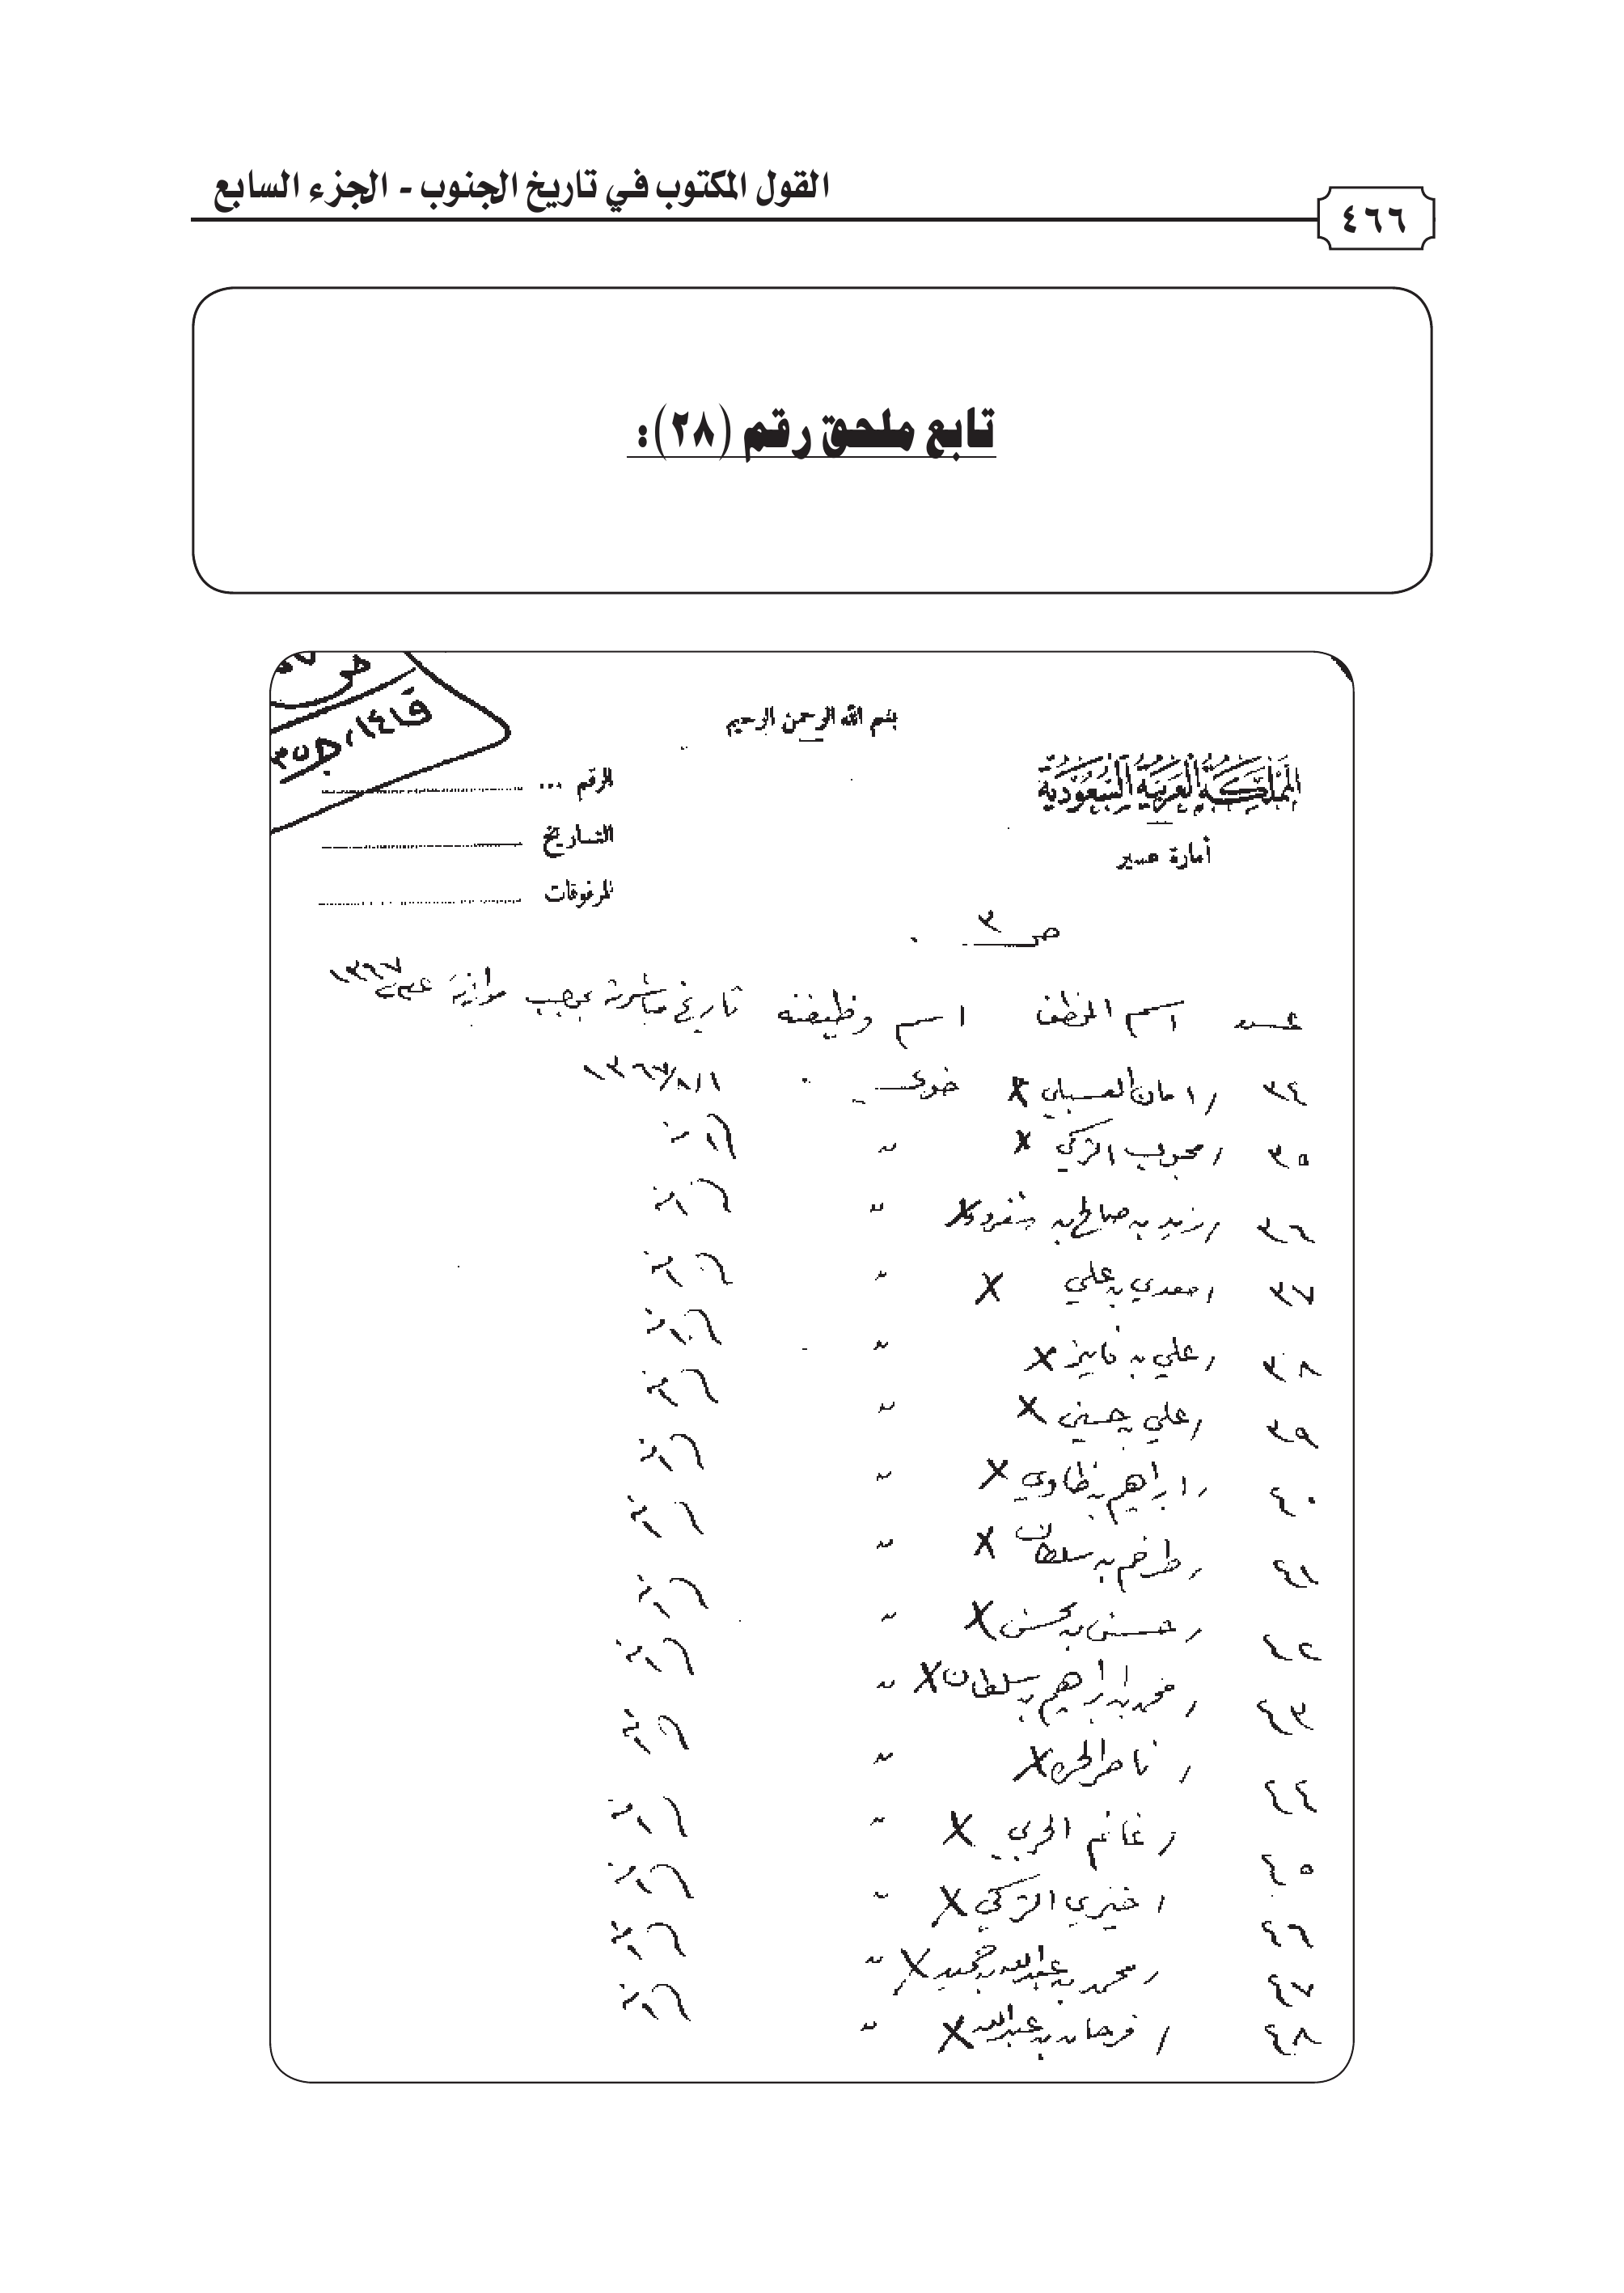 القول المكتوب في تاريخ الجنوب - الجزء السابع
٤٦٦
تابع ملحق رقم (٢٨):
بسم الله الرحمن الرحيم
المملكة العربية السعودية
أمارة عسير
الرقم ...
التاريخ
المرفوقات
ص ٣
عدد اسم الموظف اسم وظيفته تاريخ مباشرته بموجب موازنة عام ١٣٦٧
٣٤ / امان العسبلي X خوي ١٣٦٧/٨/١
٣٥ / محبوب التركي X "
٣٦ / زيد بن صالح بن X "
٣٧ / معدي بن علي X "
٣٨ / علي بن فايز X "
٣٩ / علي بن حسين X "
٤٠ / ابراهيم بن ظاوي X "
٤١ / طرخم بن سلطان X "
٤٢ / حسن بن محسن X "
٤٣ / محمد بن ابراهيم بن سلطان X "
٤٤ / ناصر X "
٤٥ / غانم الحربي X "
٤٦ / خيري التركي X "
٤٧ / محمد بن عبدالله بن حميد X "
٤٨ / فرحان بن عبدالله X "